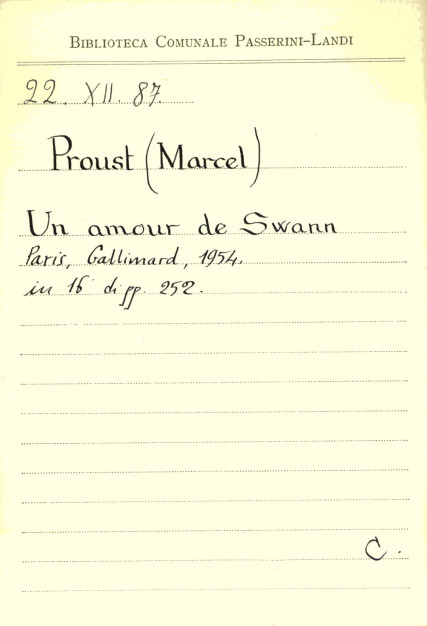 BIBLIOTECA COMUNALE PASSERINI-LANDI
22. XII. 87.
Proust (Marcel)
Un amour de Swann
Paris, Gallimard, 1954.
in 16° di pp. 252.
C.